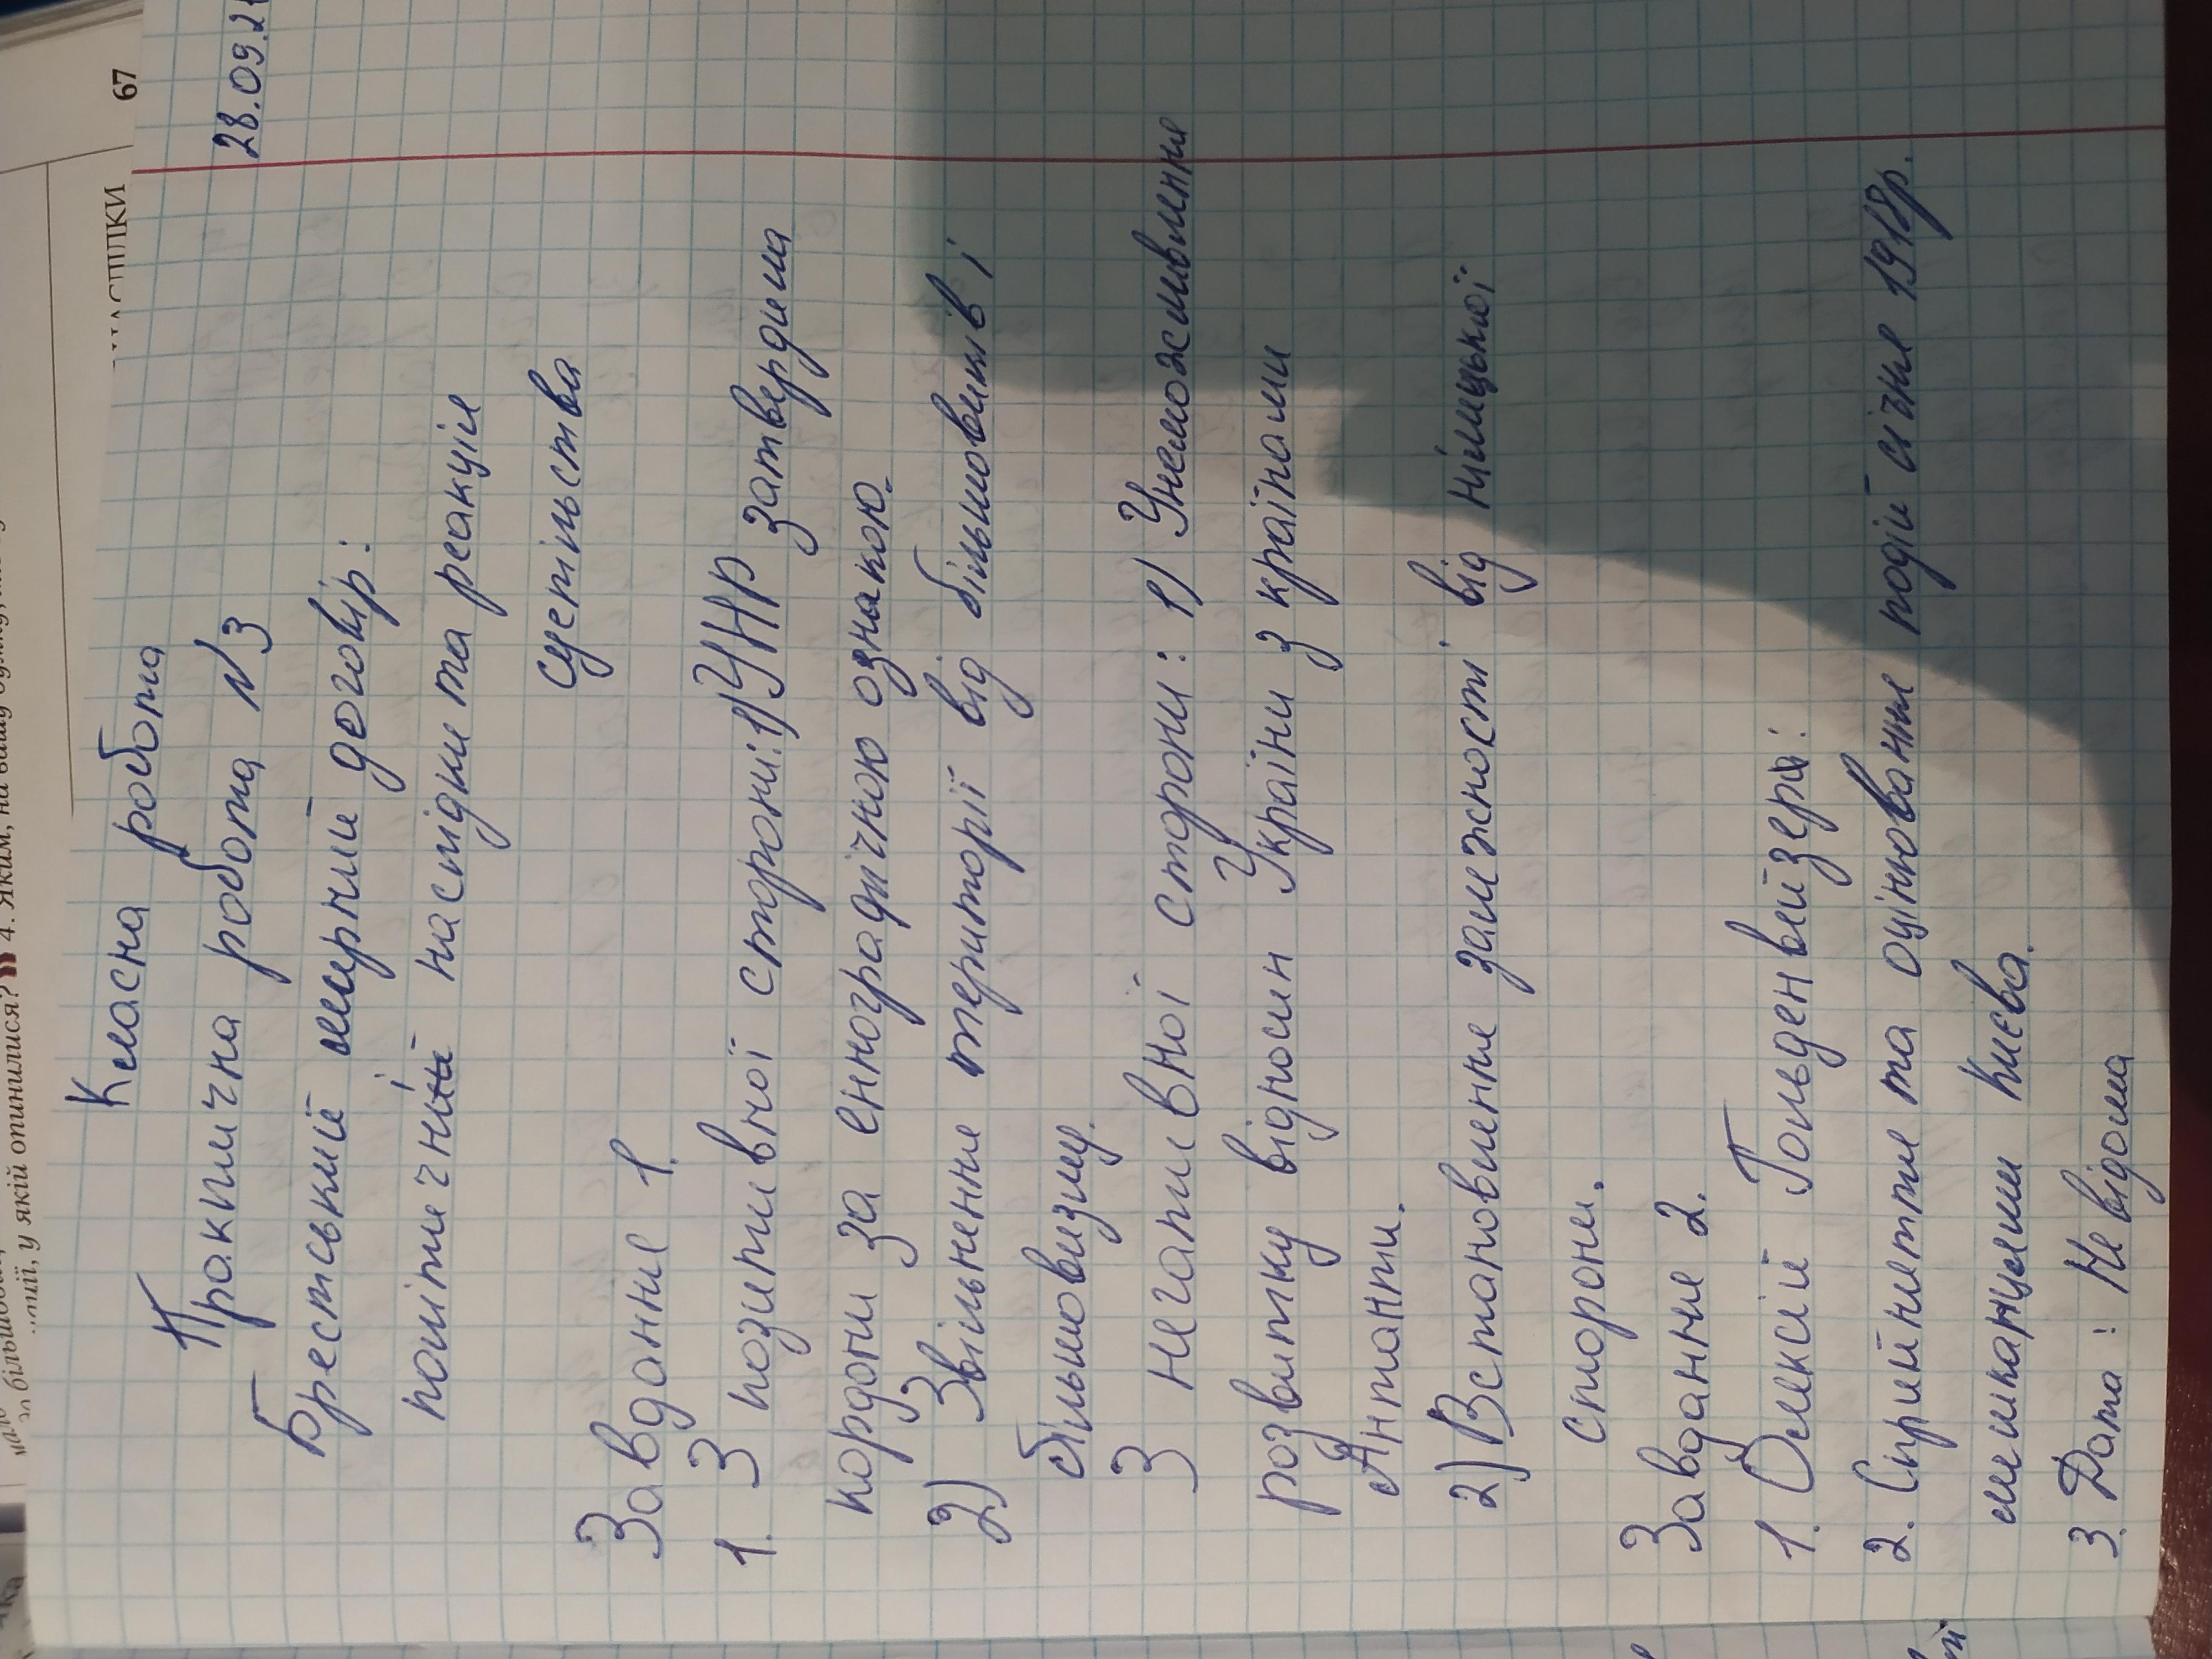 67
4. Яким, на вашу думку,
у якій опинилися?
28.09.2
Класна робота
Практична робота №3
Брестський мирний договір:
політичні наслідки та реакція
суспільства
Завдання 1.
1. З позитивної сторони: 1) УНР затвердила
кордони за еннографічною ознакою.
2) Звільнення території від більшовиків і
більшовизму.
З негативної сторони: 1) Унеможливлення
розвитку відносин України з країнами
Антанти.
2) Встановлення залежності від німецької
сторони.
Завдання 2.
1. Олексій Гольденвейзер:
2. Сприйняття та оцінювання подій січня 1918р.
мешканцями Києва.
3. Дата: Не відома